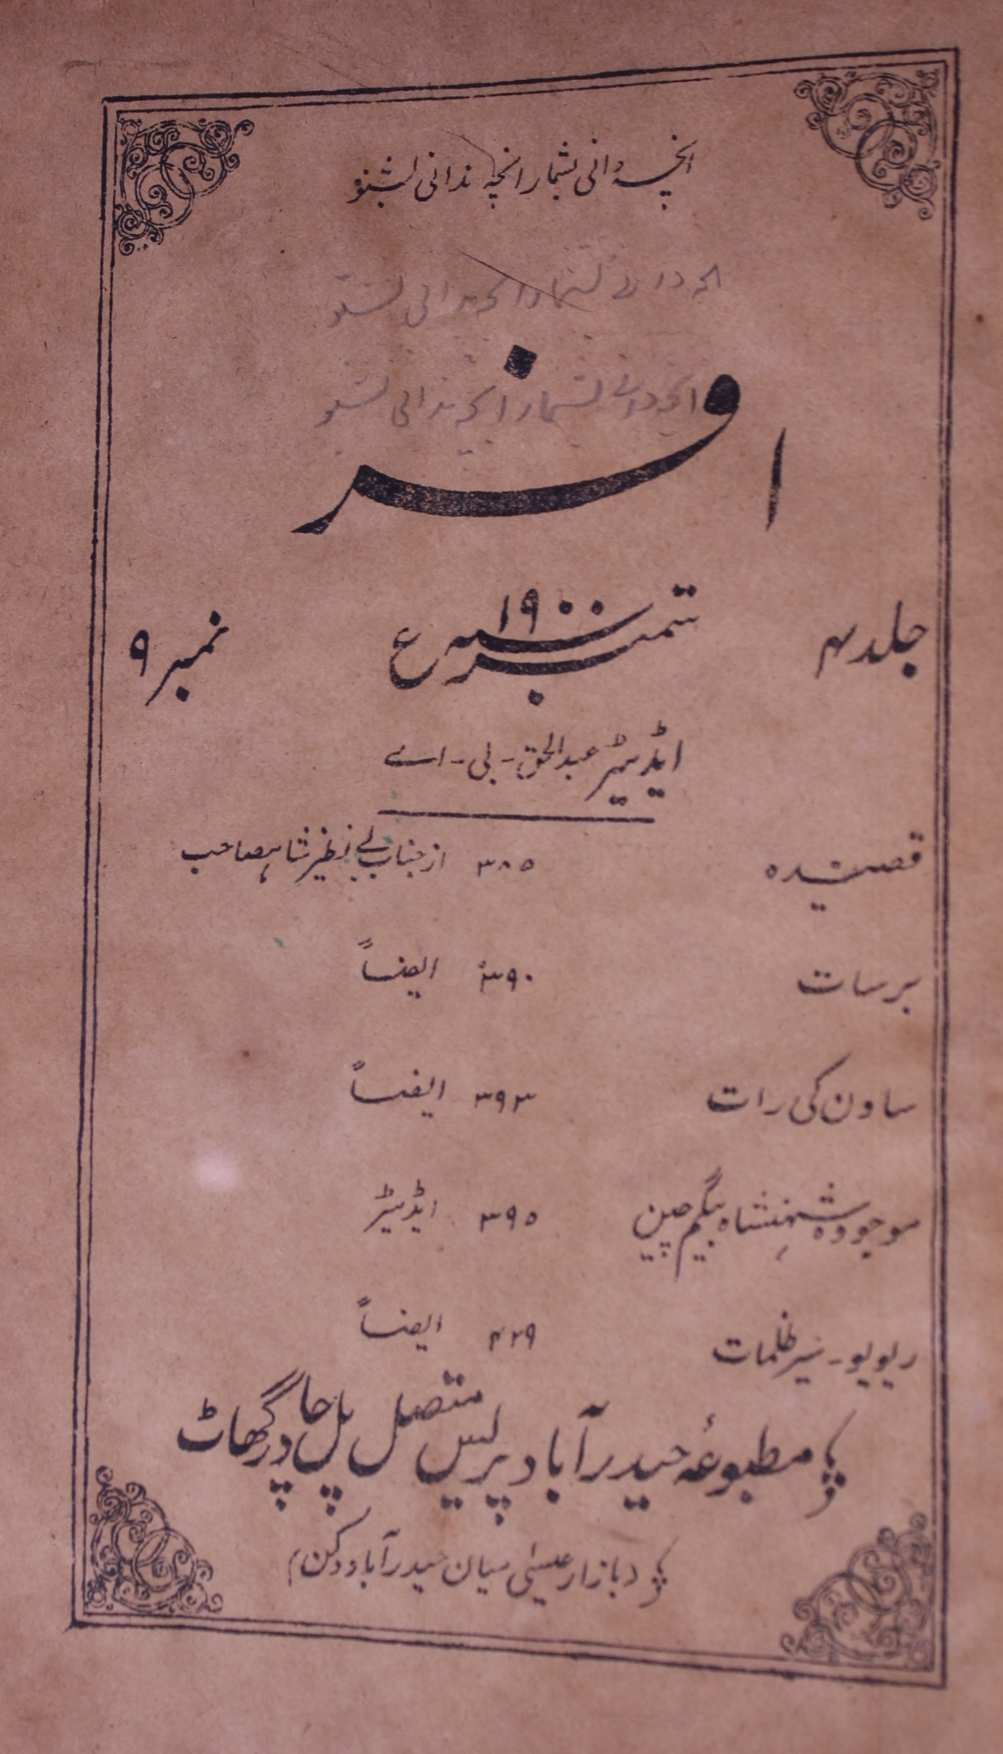 انچہ دانی بشمار انچہ ندانی بشنو
انچہ دانی بشمار انچہ ندانی بشنو
انچہ دانی بشمار انچہ ندانی بشنو
افسر
جلد ۴ ستمبر سنہ ۱۹۰۰ ع نمبر ۹
ایڈیٹر عبدالحق - بی - اے
قصیدہ ۳۸۵ از جناب بے نظیر شاہ صاحب
برسات ۳۹۰ ایضاً
ساون کی رات ۳۹۳ ایضاً
موجودہ شہنشاہ بیگم چین ۳۹۵ ایڈیٹر
ریویو - سیر ظلمات ۴۲۹ ایضاً
مطبوعۂ حیدرآباد پریس متصل پل چادرگھاٹ
بازار عیسیٰ میان حیدرآباد دکن